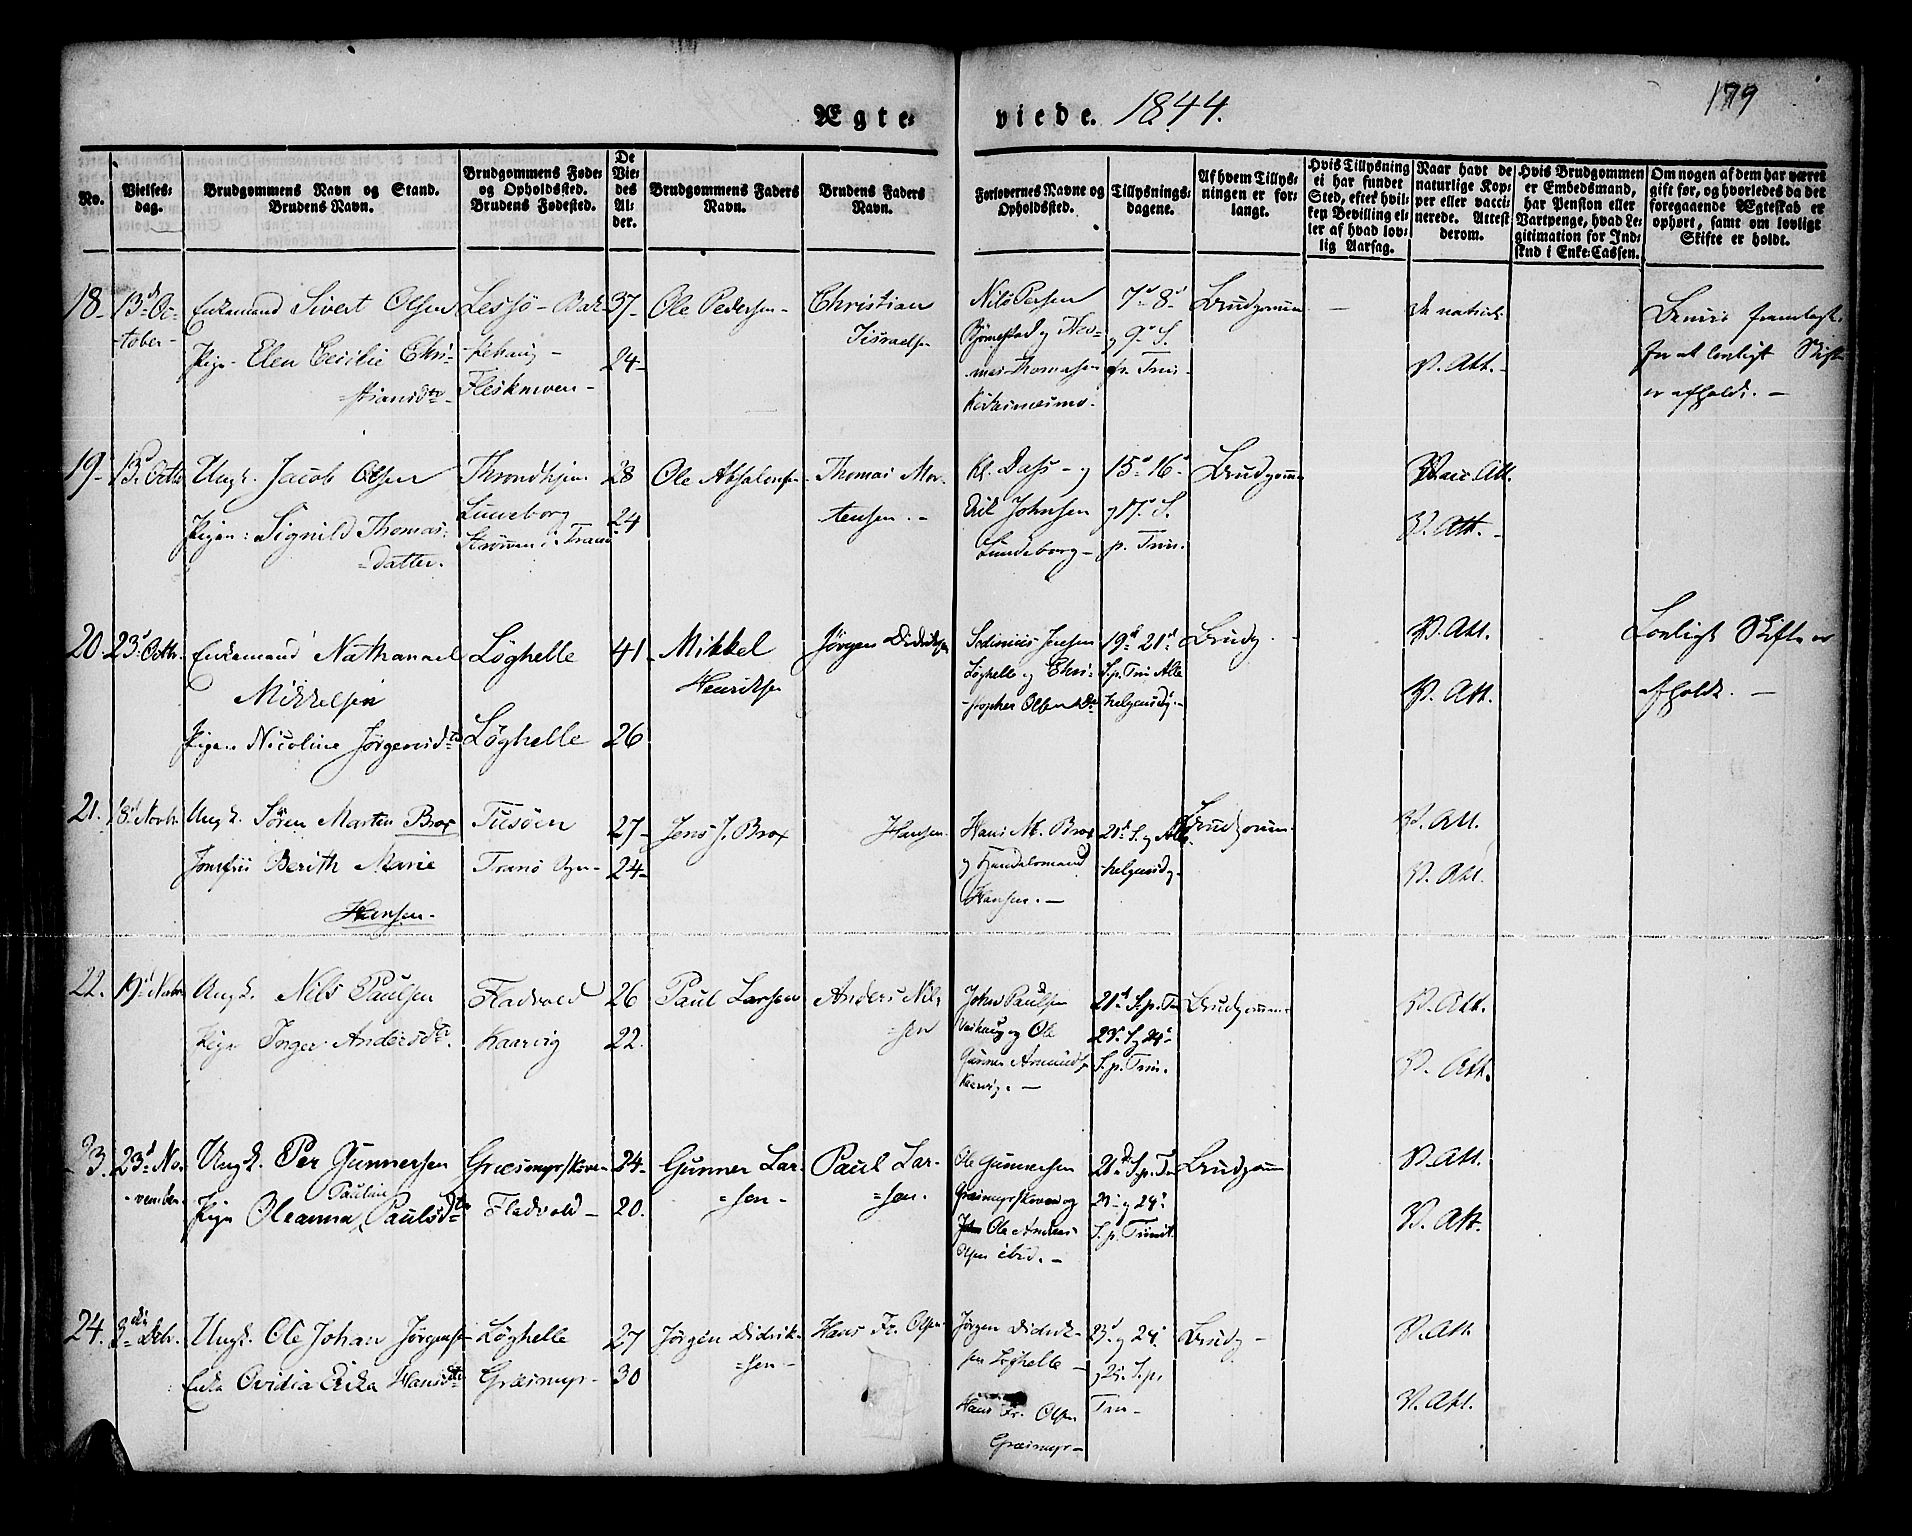 Ægte-
viede. 1844.
179
No.
Vielses-
dag.
Brudgommens Navn og Stand.
Brudens Navn.
Brudgommens Føde-
og Opholdssted.
Brudens Fødested.
De
Vie-
des
Al-
der.
Brudgommens Faders
Navn.
Brudens Faders
Navn.
Forlovernes Navne og
Opholdssted.
Tillysnings-
dagene.
Af hvem Tillys-
ningen er for-
langt.
Hvis Tillysning
ei har fundet
Sted, efter hvil-
ken Bevilling el-
ler af hvad lov-
lig Aarsag.
Naar havt de
naturlige Kop-
per eller vacci-
nerede. Attest
derom.
Hvis Brudgommen
er Embedsmand,
har Pension eller
Vartpenge, hvad Le-
gitimation for Ind-
skud i Enke-Cassen.
Om nogen af dem har været
gift før, og hvorledes da det
foregaaende Ægteskab er
ophørt, samt om lovligt
Skifte er holdt.
18-
13d Oc-
tober-
Enkemand Sivert Olsen
Pige- Elen Cecilie Chri-
stiansdtr-
Lessø-
Fleskmoen-
37-
24-
Ole Pedersen-
Christian
Jisraelsen
Nils Persen
og Tho-
mas Thomasen
7d 8d
og 9d S.
p. Trin.
Brudgommen
-
de naturl.
V. Att.-
Bevis fremlagt
for at lovligt Skifte
er afholdt. -
19-
13d Octb.
Ungk. Jacob Olsen
Pigen: Signild Thomas-
datter.
Throndhjem
Luneborg
i Tranø
28
24
Ole Absalonsen
Thomas Mor-
tensen. -
Kl. Dass- og
Erik Johnsen
Lundeborg-
15d 16d
og 17d S.
p. Trin.
Brudgomm
Vacc. Att.
V. Att. -
20.
23d Octb.
Enkemand Nathanael
Mikkelsen
Pigen Nicoline Jørgensdtr
Løghelle
Løghelle
41-
26
Mikkel
Henriksen
Jørgen Didriksen
Jensen
Løghelle og Chri-
stopher Olsen
19d 21d
S. p. Trin Alle
helgensdg.-
Brudg.
V. Att.
V. Att.
Lovligt Skifte er
afholdt. -
21.
Novbr.
Ungk. Søren Martin Brox
Berith Marie
Hansen-
Tusøen
Tranø
27-
24-
Jens J. Brox
Hansen
Hans M. Brox
og Handelsmand
Hansen. -
21d S. og Alle-
helgensdg.
Brudgomm.
V. Att.
V. Att.
22.
19d Novbr
Ungk. Nils Paulsen
Pige Inger Andersdtr.
Fladvold
Kaarvig
26
22.
Paul Larsen
Anders Nil-
sen
John Paulsen
og Ole
Gunner
Kaarvig. -
21d S. p. Tr.
23d S. og 24d
S. p. Trin.
Brudgomm
V. Att.
V. Att.
23.
23d No-
vember.
Ungk. Per Gunnersen
Pauline
Pige Oleanna Paulsdtr
Græsmyrskoven
Fladvold-
24-
20.
Gunner Lar-
sen-
Paul Lar-
sen.
Ole Gunnersen
Græsmyrskoven og
Ole Andreas
Olsen ibid. -
21d S. p. Tr
23- og 24d
S. p. Trinit.
Brudgomm
V. Att.
V. Att.
24.
3die Debr.
Ungk. Ole Johan Jørgensen
Enke Ovidia Erika Hansdtr
Løghelle
Græsmyr-
27
30
Jørgen Didrik-
sen-
Hans Fr. Olsen
Jørgen Didrik-
sen Løghelle -
Hans Fr. Olsen
Græsmyr-
23d og 24d
og 25. S. p.
Trin-
Brudg-
V. Att.
V. Att.